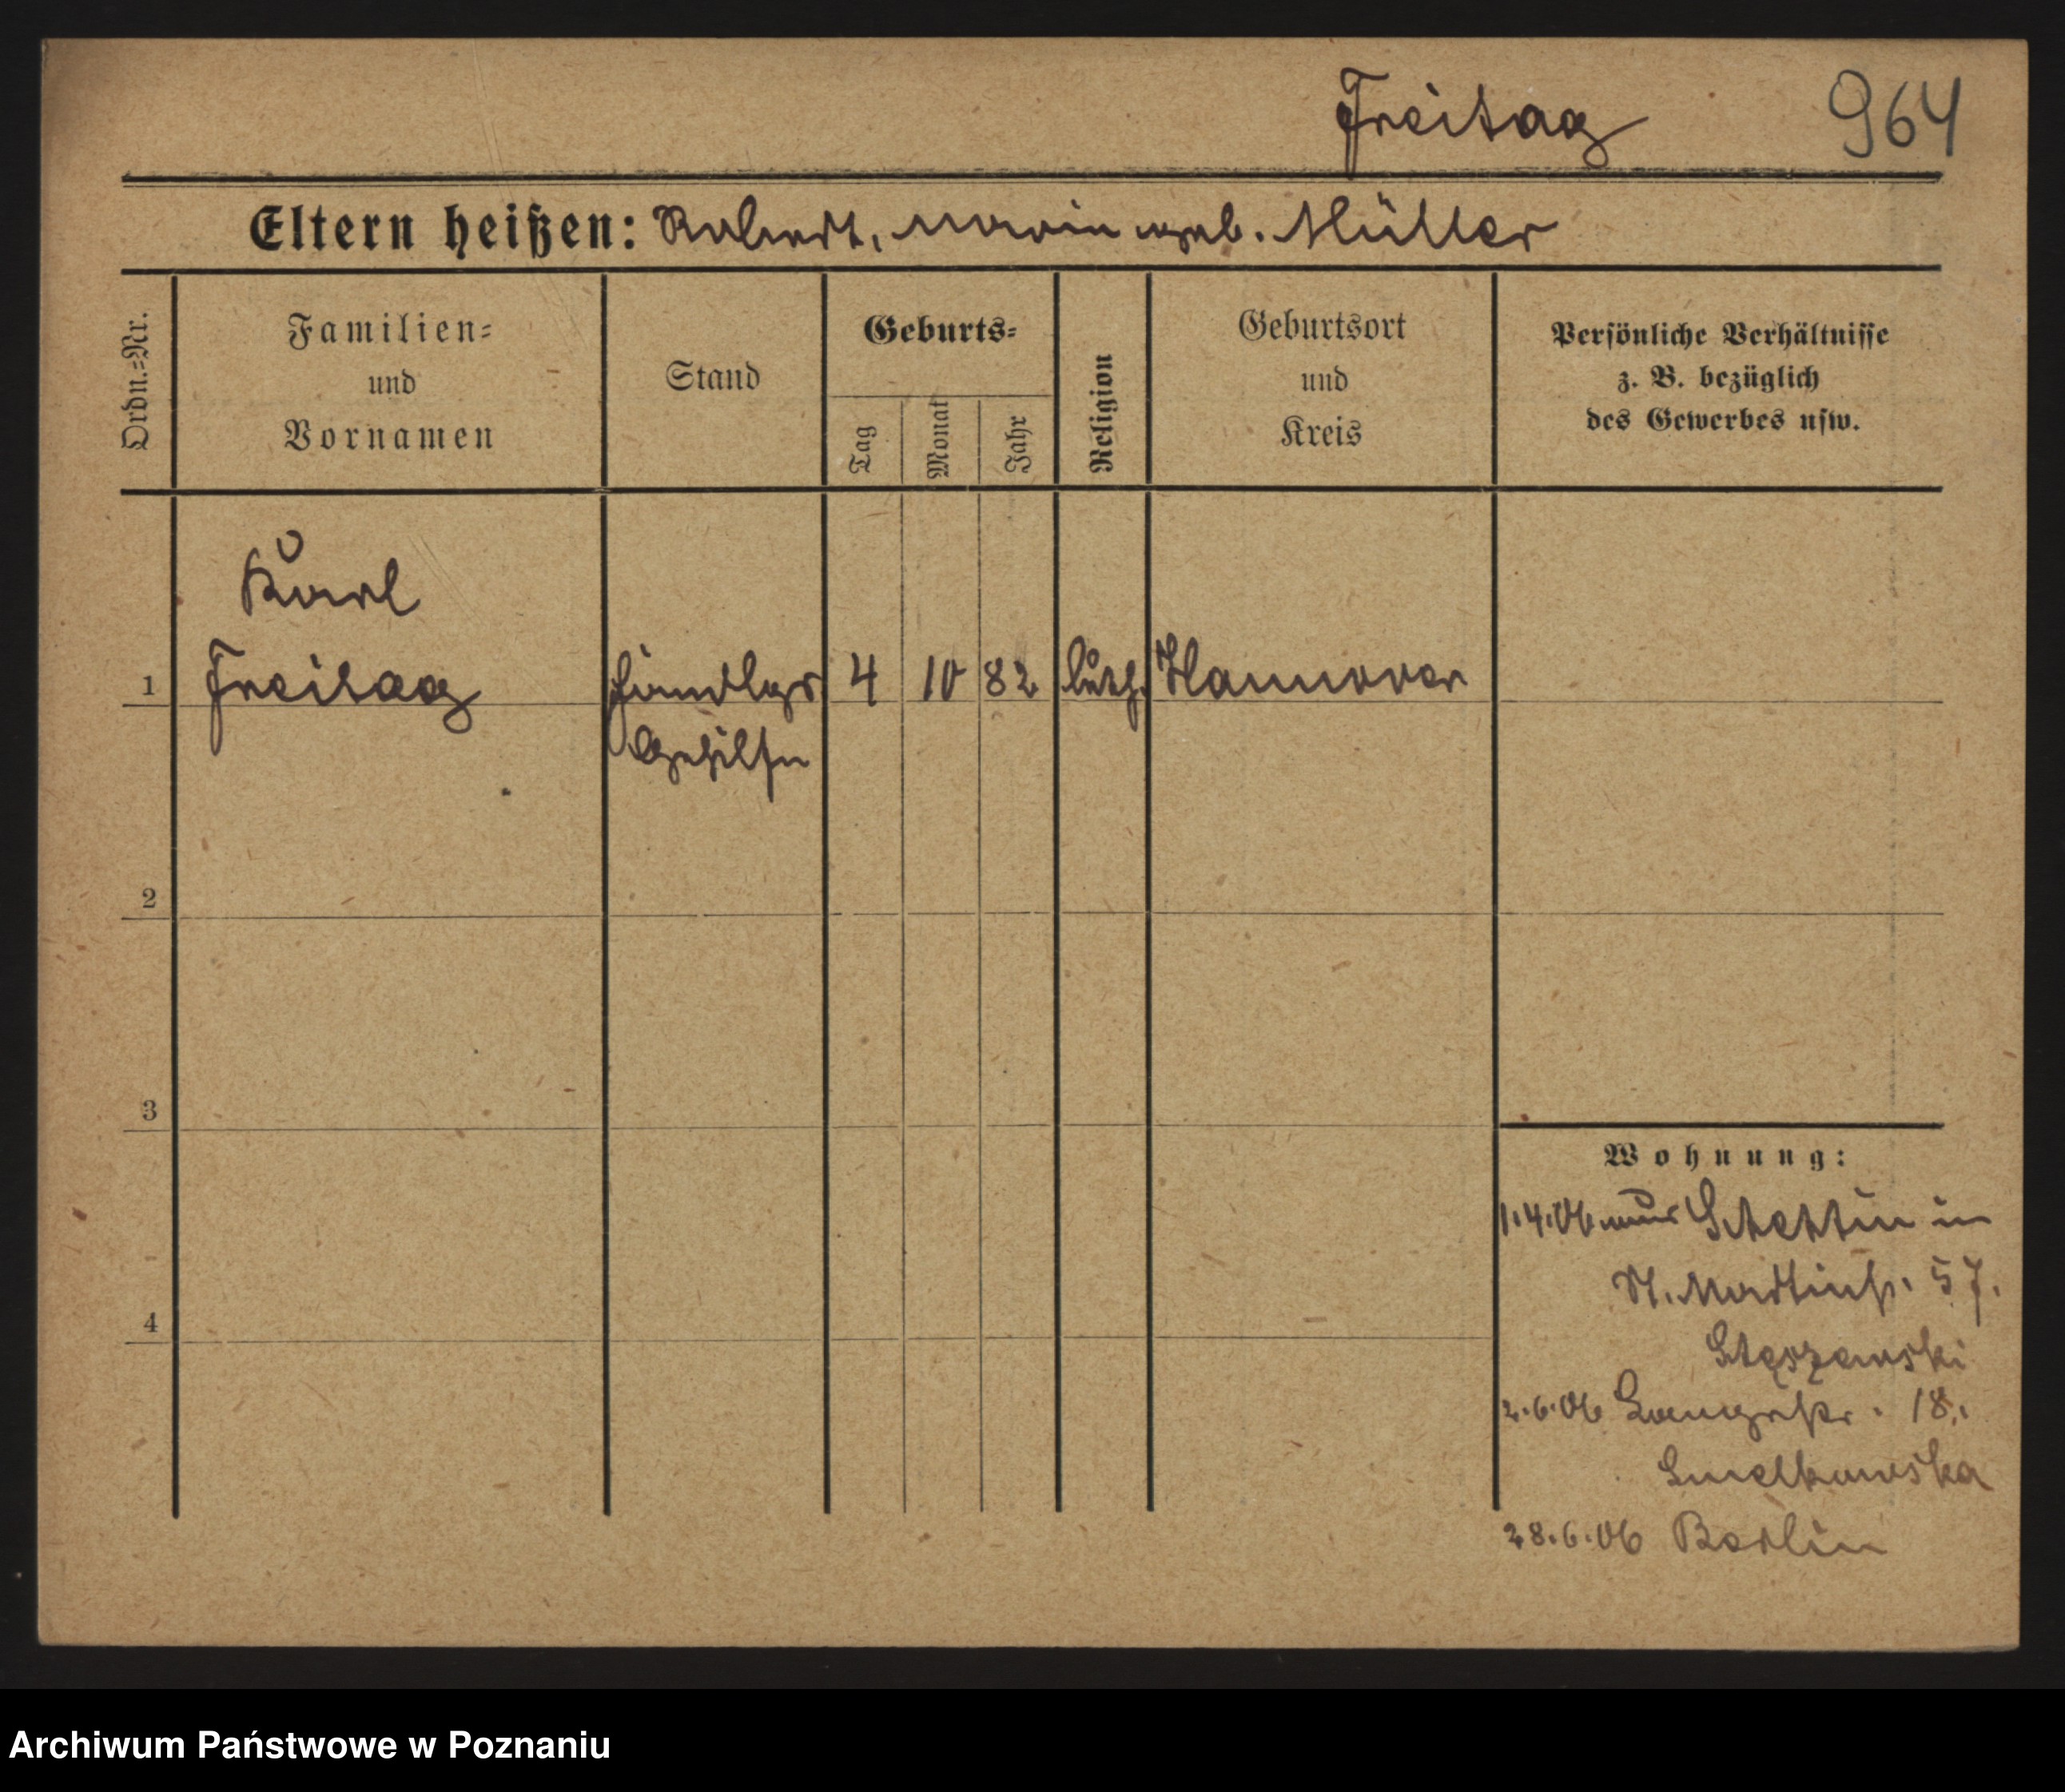 Freitag 964
Eltern heißen: Robert, Marie geb. Müller
Ordn.=Nr.
Familien=
und
Vornamen
Stand
Geburts=
Tag
Monat
Jahr
Religion
Geburtsort
und
Kreis
Persönliche Verhältnisse
z. B. bezüglich
des Gewerbes usw.
Karl
1 Freitag Handlgs 4 10 82 luth. Hannover
Gehilfe
2
3
4
Wohnung:
1.4.06 aus Stettin in
St. Martinstr. 57.
Stęszewski
2.6.06 Langestr. 18.
28.6.06 Berlin
Archiwum Państwowe w Poznaniu